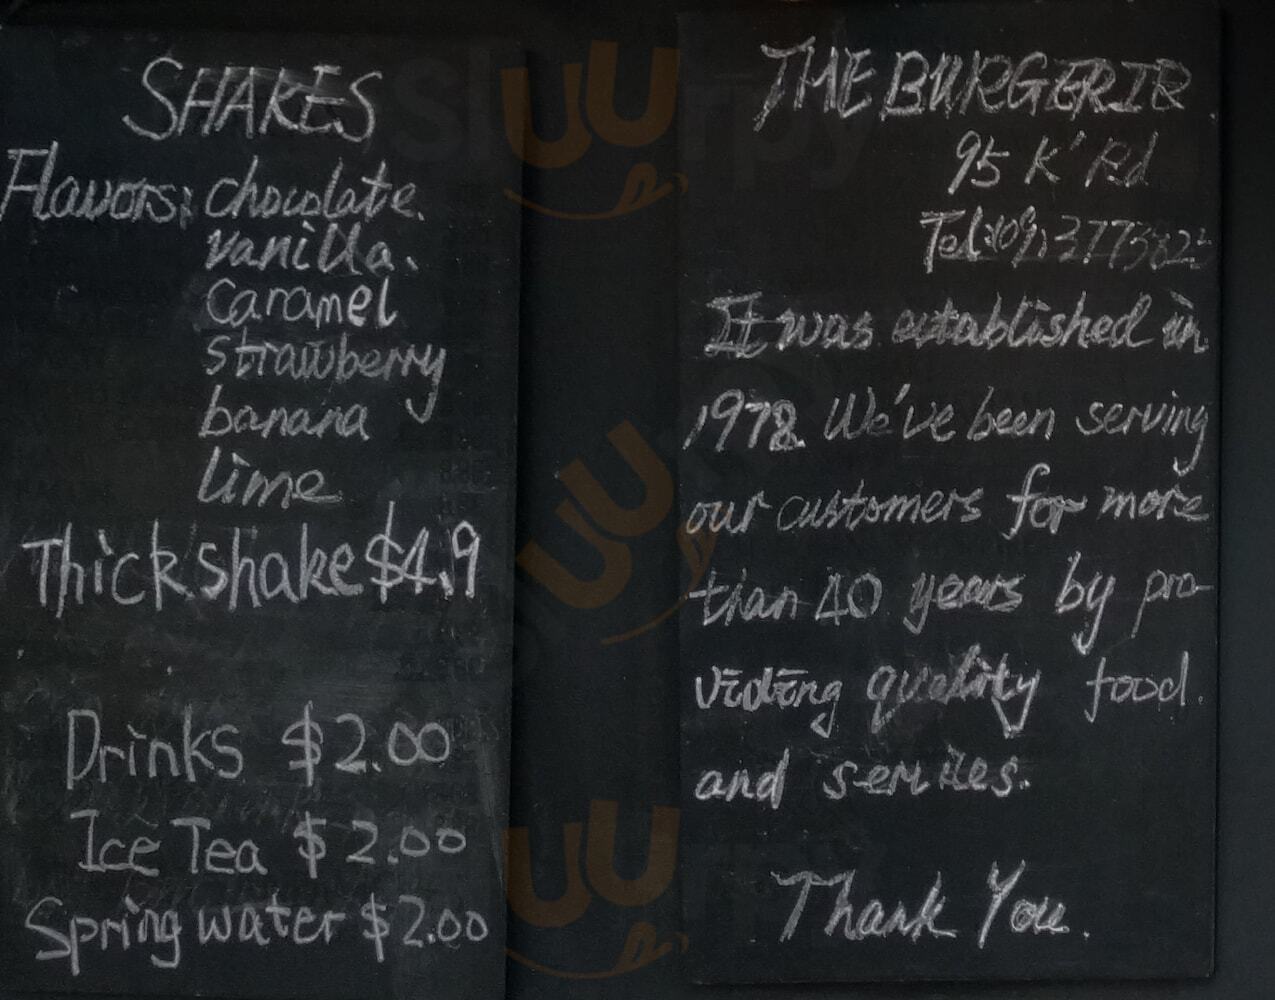 SHAKES
Flavors: chocolate.
vanilla.
caramel
strawberry
banana
lime
Thick shake $4.9
Drinks $2.00
Ice Tea $2.00
Spring water $2.00
THE BURGERIE
95 K' Rd
Tel:(09)
It was established in
We've been serving
our customers for more
than 40 years by pro-
viding quality food.
and services.
Thank You.
slurpy
slurpy
slurpy